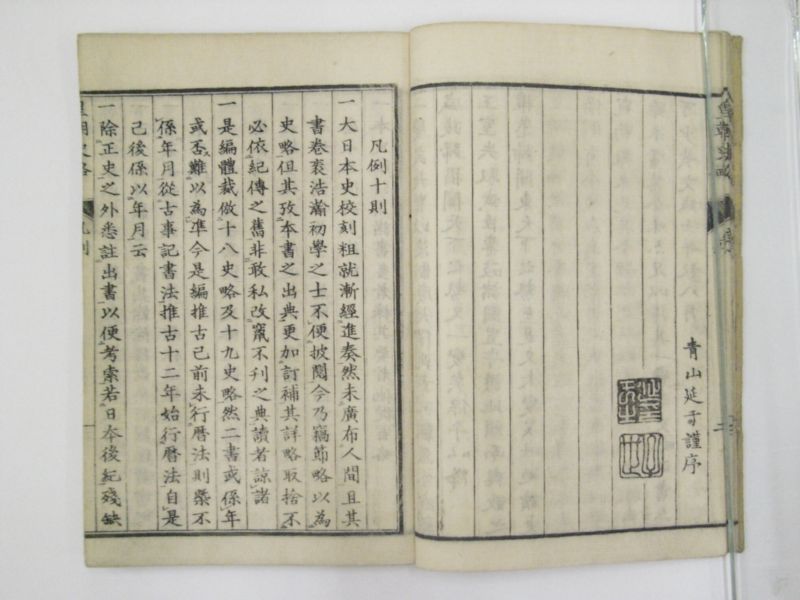 皇朝史略
序
青山延于謹序
凡例十則
一大日本史校刻粗就漸經進奏然未廣布人間且其
書卷袠浩瀚初學之士不便披閱今乃竊節略以為
史略但其攷本書之出典更加訂補其詳略取捨不
必依紀傳之舊非敢私改竄不刊之典讀者諒諸
一是編體裁倣十八史略及十九史略然二書或係年
或否難以為準今是編推古已前未行曆法則槩不
係年月從古事記書法推古十二年始行曆法自是
已後係以年月云
一除正史之外悉註出書以便考索若日本後紀殘缺
皇朝史略
凡例